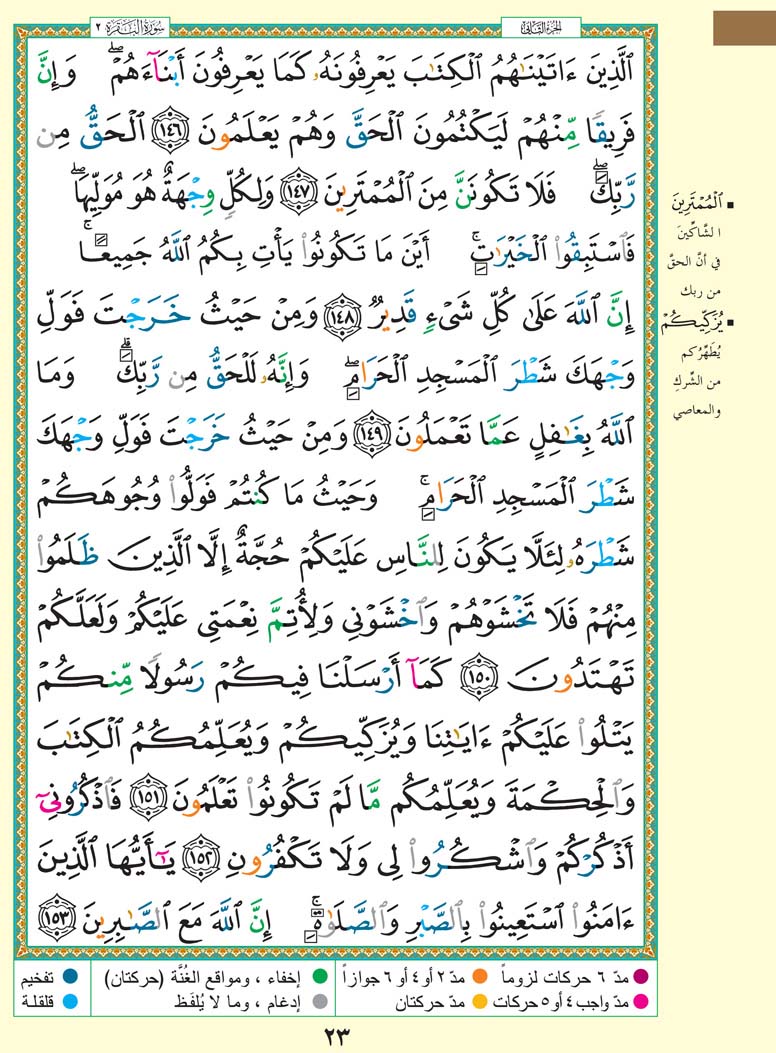 سُورَةُ البَقَرَةِ ٢
الجُزءُ الثَّانِي
ٱلَّذِينَ ءَاتَيْنَٰهُمُ ٱلْكِتَٰبَ يَعْرِفُونَهُۥ كَمَا يَعْرِفُونَ أَبْنَآءَهُمْ ۖ وَإِنَّ
فَرِيقًا مِّنْهُمْ لَيَكْتُمُونَ ٱلْحَقَّ وَهُمْ يَعْلَمُونَ ١٤٦ ٱلْحَقُّ مِن
رَّبِّكَ ۖ فَلَا تَكُونَنَّ مِنَ ٱلْمُمْتَرِينَ ١٤٧ وَلِكُلٍّ وِجْهَةٌ هُوَ مُوَلِّيهَا ۖ
فَٱسْتَبِقُوا۟ ٱلْخَيْرَٰتِ ۚ أَيْنَ مَا تَكُونُوا۟ يَأْتِ بِكُمُ ٱللَّهُ جَمِيعًا ۚ
إِنَّ ٱللَّهَ عَلَىٰ كُلِّ شَىْءٍ قَدِيرٌ ١٤٨ وَمِنْ حَيْثُ خَرَجْتَ فَوَلِّ
وَجْهَكَ شَطْرَ ٱلْمَسْجِدِ ٱلْحَرَامِ ۖ وَإِنَّهُۥ لَلْحَقُّ مِن رَّبِّكَ ۗ وَمَا
ٱللَّهُ بِغَٰفِلٍ عَمَّا تَعْمَلُونَ ١٤٩ وَمِنْ حَيْثُ خَرَجْتَ فَوَلِّ وَجْهَكَ
شَطْرَ ٱلْمَسْجِدِ ٱلْحَرَامِ ۚ وَحَيْثُ مَا كُنتُمْ فَوَلُّوا۟ وُجُوهَكُمْ
شَطْرَهُۥ لِئَلَّا يَكُونَ لِلنَّاسِ عَلَيْكُمْ حُجَّةٌ إِلَّا ٱلَّذِينَ ظَلَمُوا۟
مِنْهُمْ فَلَا تَخْشَوْهُمْ وَٱخْشَوْنِى وَلِأُتِمَّ نِعْمَتِى عَلَيْكُمْ وَلَعَلَّكُمْ
تَهْتَدُونَ ١٥٠ كَمَآ أَرْسَلْنَا فِيكُمْ رَسُولًا مِّنكُمْ
يَتْلُوا۟ عَلَيْكُمْ ءَايَٰتِنَا وَيُزَكِّيكُمْ وَيُعَلِّمُكُمُ ٱلْكِتَٰبَ
وَٱلْحِكْمَةَ وَيُعَلِّمُكُم مَّا لَمْ تَكُونُوا۟ تَعْلَمُونَ ١٥١ فَٱذْكُرُونِىٓ
أَذْكُرْكُمْ وَٱشْكُرُوا۟ لِى وَلَا تَكْفُرُونِ ١٥٢ يَٰٓأَيُّهَا ٱلَّذِينَ
ءَامَنُوا۟ ٱسْتَعِينُوا۟ بِٱلصَّبْرِ وَٱلصَّلَوٰةِ ۚ إِنَّ ٱللَّهَ مَعَ ٱلصَّٰبِرِينَ ١٥٣
▪ ٱلْمُمْتَرِينَ
الشَّاكِّينَ
في أنَّ الحقَّ
من ربك
▪ يُزَكِّيكُمْ
يُطَهِّرُكم
من الشِّركِ
والمعاصي
مدّ ٦ حركات لزوماً ● مدّ ٢ أو ٤ أو ٦ جوازاً ● إخفاء ، ومواقع الغُنَّة (حركتان) ● تفخيم
مدّ واجب ٤ أو ٥ حركات ● مدّ حركتان ● إدغام ، وما لا يُلفَظ ● قلقلة
٢٣